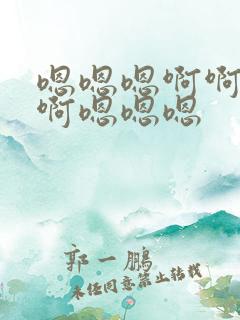 嗯嗯嗯啊啊
啊嗯嗯嗯
郭一鹏
未经同意禁止转载